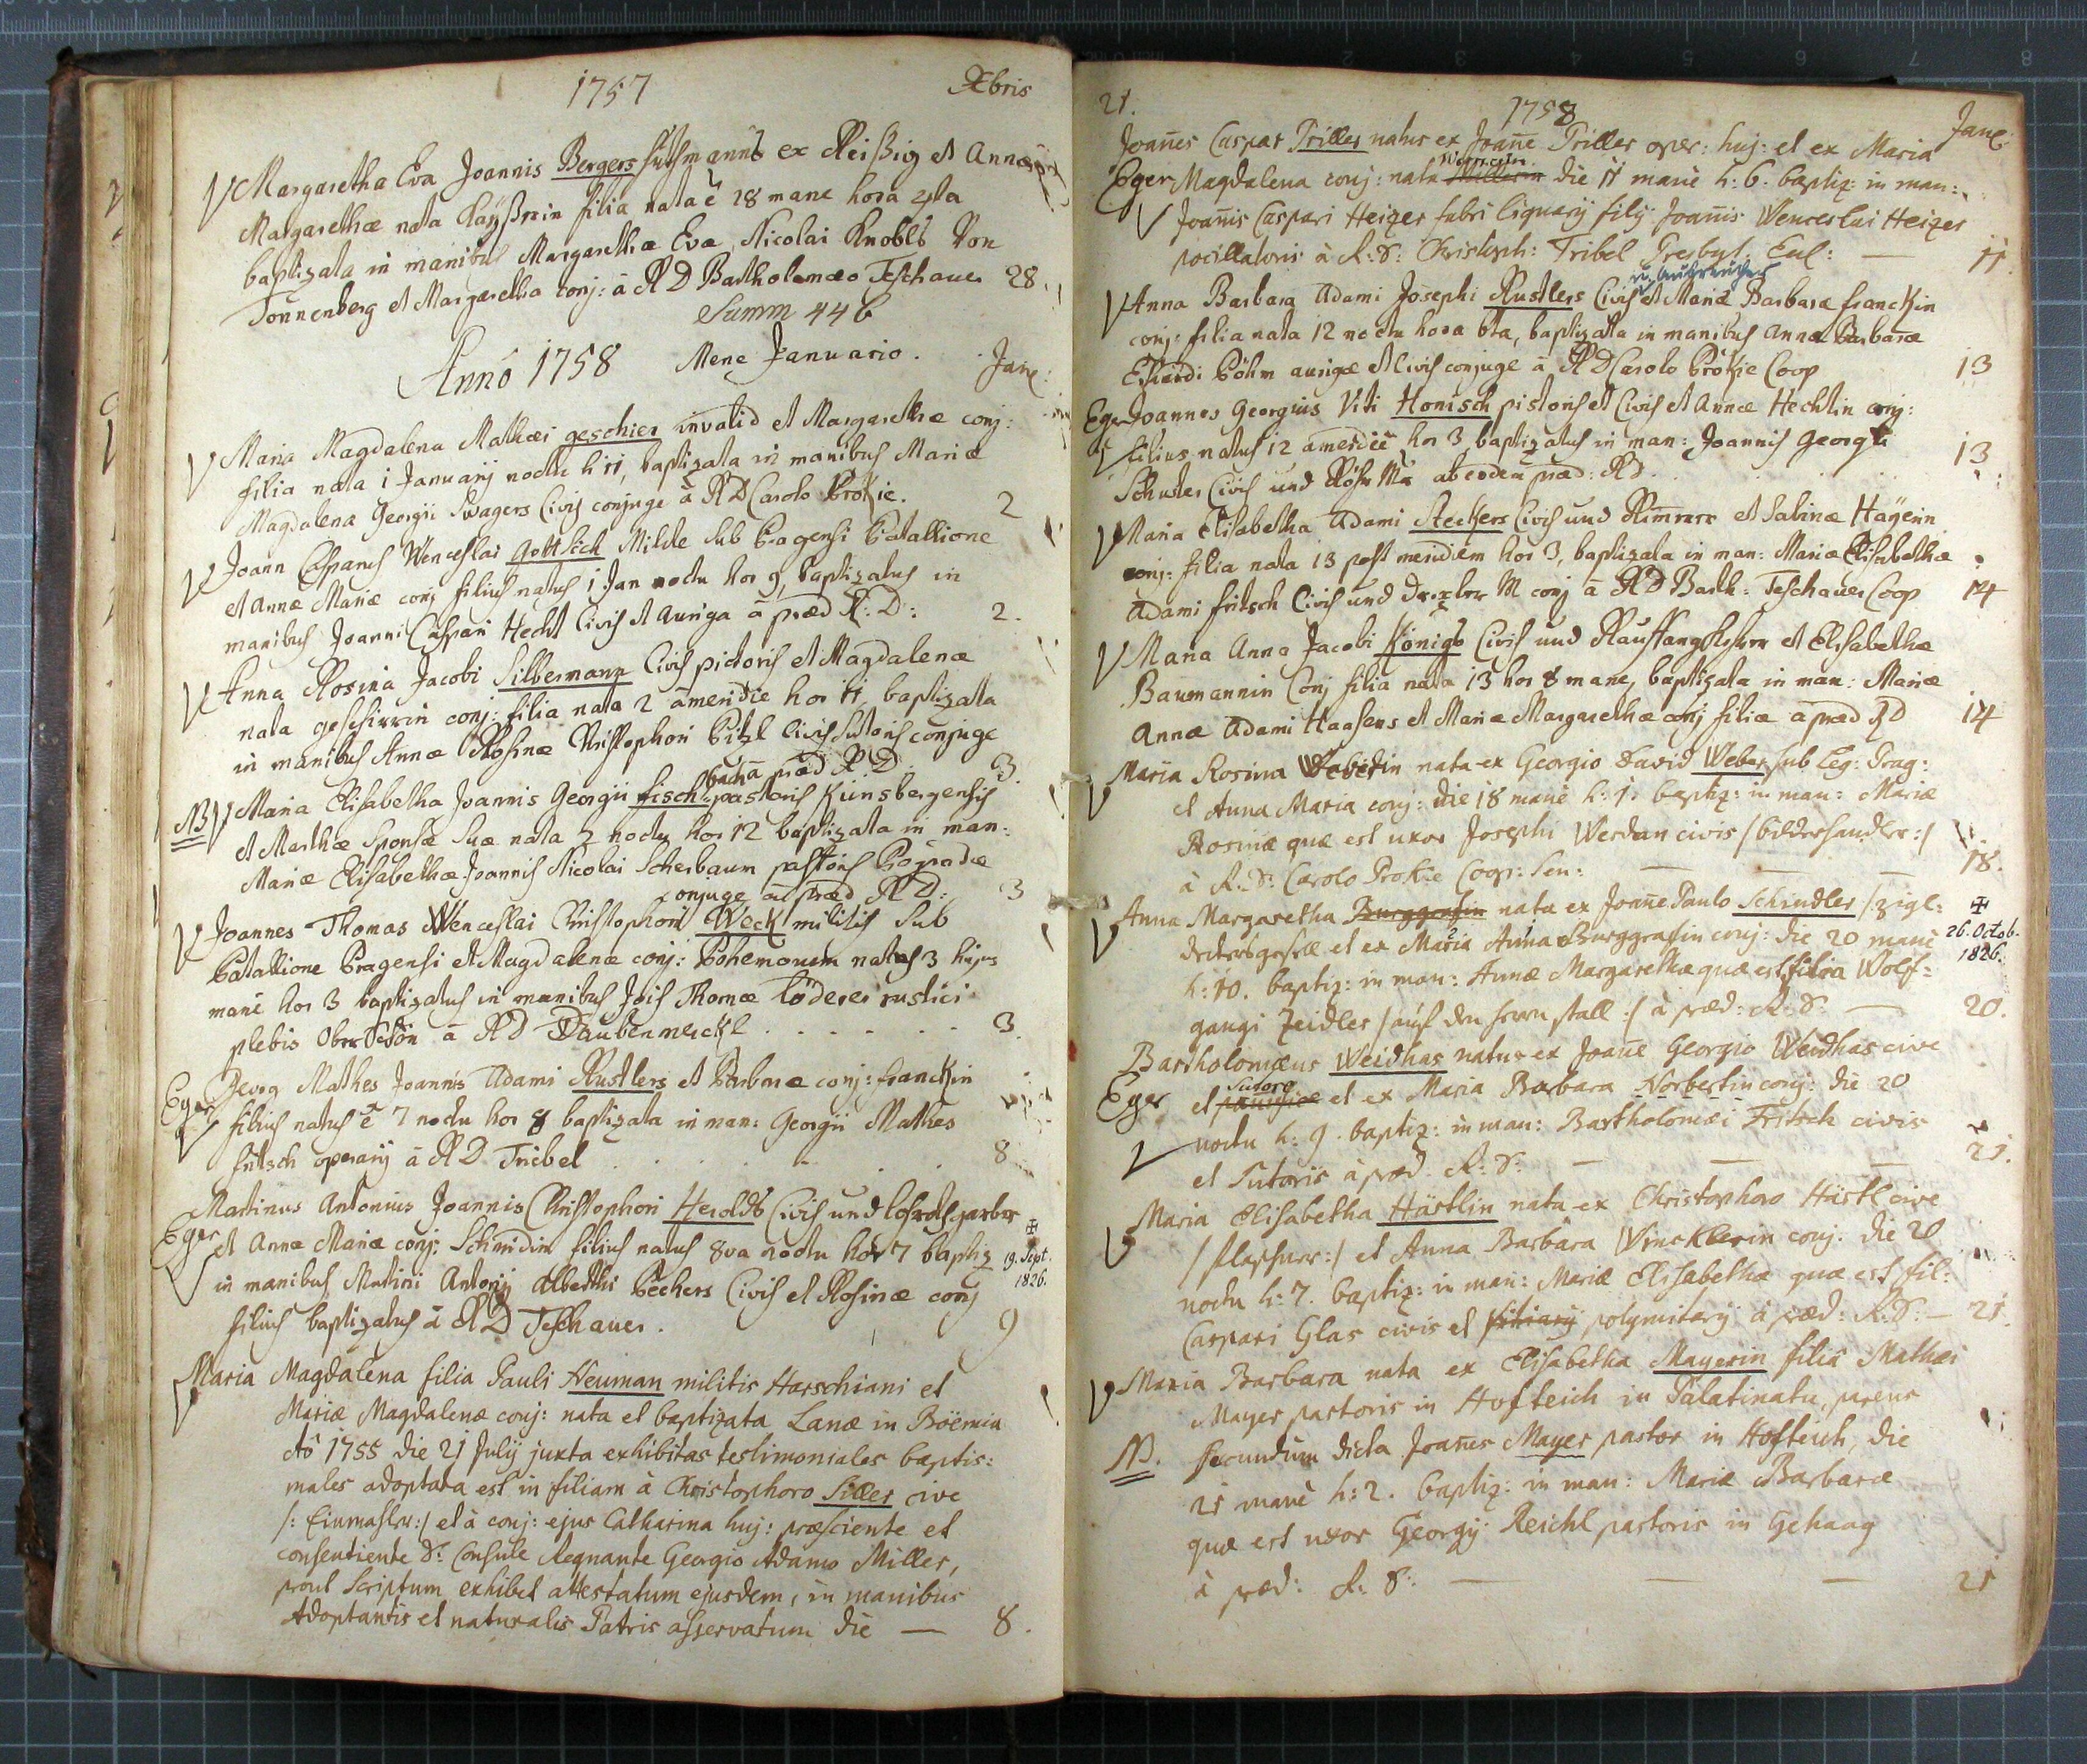 1757 Xbris
Margaretha Eva Joannis Bergers ex Reißig et Annæ
Margarethæ nata filia nata ē 28 mane hora 4ta
baptizata in manibus Margarethæ Eva Nicolai Knobls Von
Tonnenberg et Margaretha conj: à R D Bartholomæo Teschauer 28.
Summ 446
Anno 1758 Mene Januario. Jane:
Maria Magdalena Mathæi geschier invalid et Margarethæ conj:
filia nata 1 Januarij noctu h 11, baptizata in manibus Mariæ
Magdalena Georgii Swagers Civis conjuge à R D Carolo Prokie. 2
Joann Casparus Wenceslai Gottsich Milite sub Pragensi Batallione
et Annæ Mariæ conj filius natus 1 Jan noctu hor 9, baptizatus in
manibus Joanni Caspari Hecht Civis et Auriga à præd R: D: 2.
Anna Rosina Jacobi Silbermann Civis pictoris et Magdalenæ
nata geschirrin conj: filia nata 2 ameridie hor 11, baptizata
in manibus Annæ Rosinæ Christophori Pitzl Civis Sutoris conjuge
à præd R D. 3.
NB Maria Elisabetha Joannis Georgii fischbach pastoris Künsbergensis
et Marthæ Sponsæ Suæ nata 2 noctu hor 12 baptizata in man:
Mariæ Elisabethæ Joannis Nicolai Scherbaum pastoris Pograda
conjuge à præd R D: 3
Joannes Thomas Wenceslai Christophori Weck militis sub
Batallione Pragensi et Magdalenæ conj: Bohemorum natus 3 hujus
mane hor 3 baptizatus in manibus Jois Thomæ Löderer rustici
plebis Ober à R D Daubenmerckl . . . . . . 3.
Eger Georg Mathes Joannis Adami Rustlers et Barbaræ conj: franckin
filius natus ē 7 noctu hor 8 baptizata in man: Georgii Mathes
fritsch operarij à R D Tribel . . . . . 8
Martinus Antonius Joannis Christophori Herolds Civis und
Eger et Annæ Mariæ conj: Schmidin filius natus 8va noctu hor 7 baptiz 19. Sept.
in manibus Martini Antonij Alberthi Beckers Civis et Rosinæ conj 1826.
filius baptizatus à R D Teschauer. 9
Maria Magdalena filia Pauli Neuman militis Harschiani et
Mariæ Magdalenæ conj: nata et baptizata Lanæ in Böemia
Aō 1755 die 21 Julij juxta exhibitas testimoniales baptis:
males adoptata est in filiam à Christophoro Siller cive
et à conj: ejus Catharina huj: præsciente et
consentiente D: Consule Regnante Georgio Adamo Miller,
prout Scriptum exhibet attestatum ejusdem, in manibus
Adoptantis et naturalis Patris asservatum die — 8.
21. 1758 Jane:
Joañes Caspar Triller natus ex Joañe Triller oper: huj: et ex Maria
Eger Magdalena conj: nata die 11 mane h: 6. baptiz: in man:
Joañis Caspari Heizer fabri lignarij filij Joañis Wenceslai Heizer
pocillatoris à R: D: Christoph: Tribel Presbyt: Eul: — 11.
Anna Barbara Adami Josephi Rustlers Civis et Mariæ Barbaræ franckin
conj: filia nata 12 noctu hora 6ta, baptizata in manibus Annæ Barbaræ
Erhardi Böhm aurigæ et Civis conjuge à R D Carolo Prokie Coop 13
Eger Joannes Georgius Viti Honisch pistoris et Civis et Annæ Hechtin conj:
filius natus 12 ameridie hor 3 baptizatus in man: Joannis Georgii
Schuster Civis und ab eodem præd: R D . . . 13
Maria Elisabetha Adami Steckers Civis und et Sabinæ Hägerin
conj: filia nata 13 post meridiem hor 3, baptizata in man: Mariæ Elisabethæ
Adami fritsch Civis und M conj à R D Barth: Teschauer Coop 14
Maria Anna Jacobi Königs Civis und et Elisabethæ
Baumannin Conj filia nata 13 hor 8 mane, baptizata in man: Mariæ
Annæ Adami Haasens et Mariæ Margarethæ conj filiæ à præd R D 14
Maria Rosina Weberin nata ex Georgio David Weber sub Leg: Prag:
et Anna Maria conj: die 18 mane h: 1. baptiz: in man: Mariæ
Rosinæ quæ est uxor Josephi Werdan civis
à R: D: Carolo Prokie Coop: Sen: — 18.
Anna Margaretha Burggrafin nata ex Joañe Paulo Schindler
et ex Maria Anna Burggrafin conj: die 20 mane 26. Octob.
h: 10. baptiz: in man: Annæ Margarethæ quæ est filia Wolf= 1826.
gangi Zeidler à præd: R: D: — 20.
Bartholomæus Weidhas natus ex Joañe Georgio Weidhas cive
Eger et Sutore et ex Maria Barbara Norbertin conj: die 20
noctu h: 9. baptiz: in man: Bartholomæi Fritsch civis
et Sutoris à præd. R: D: — — — 21.
Maria Elisabetha Härtlin nata ex Christophoro Härtl cive
et Anna Barbara Wincklerin conj. die 20
noctu h: 7. baptiz: in man: Mariæ Elisabethæ quæ est fil:
Caspari Glas civis et polymitarij à præd: R: D: — 21.
Maria Barbara nata ex Elisabetha Mayerin filia Mathæi
Mayer pastoris in Hofteich in Palatinatu, parens
N. secundum dicta Joañes Mayer pastor in Hofteich, die
21 mane h: 2. baptiz: in man: Mariæ Barbaræ
quæ est uxor Georgij Reichl pastoris in Gehaag
à præd: R: D: — — — 21